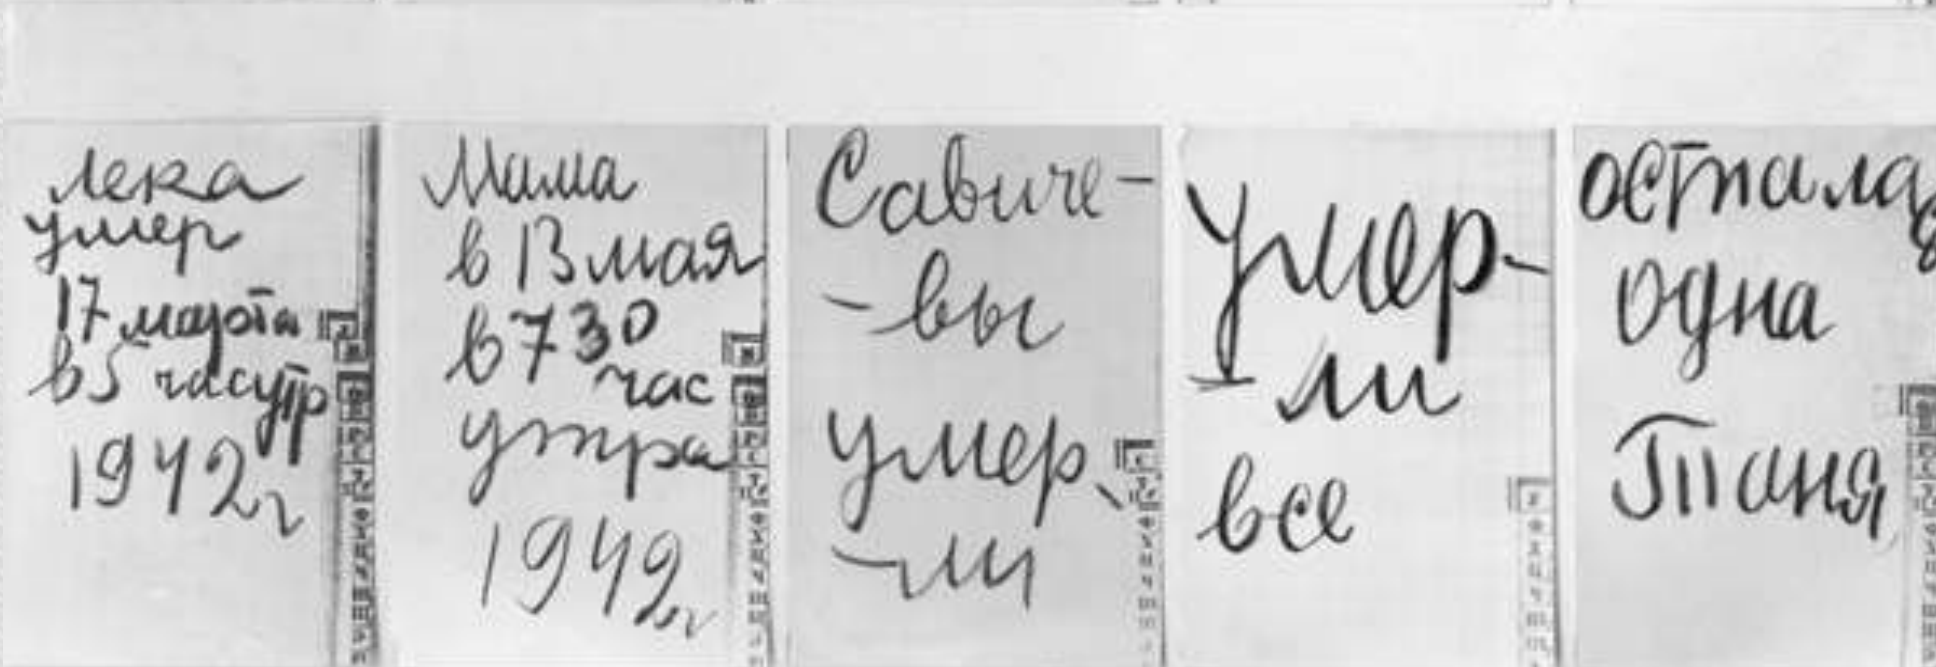 Лека
умер
17 марта
в 5 часутр
1942 г
Мама
в 13 мая
в 7 30
час
утра
1942 г
Савиче-
-вы
умер
-ли
Умер-
-ли
все
осталась
одна
Таня